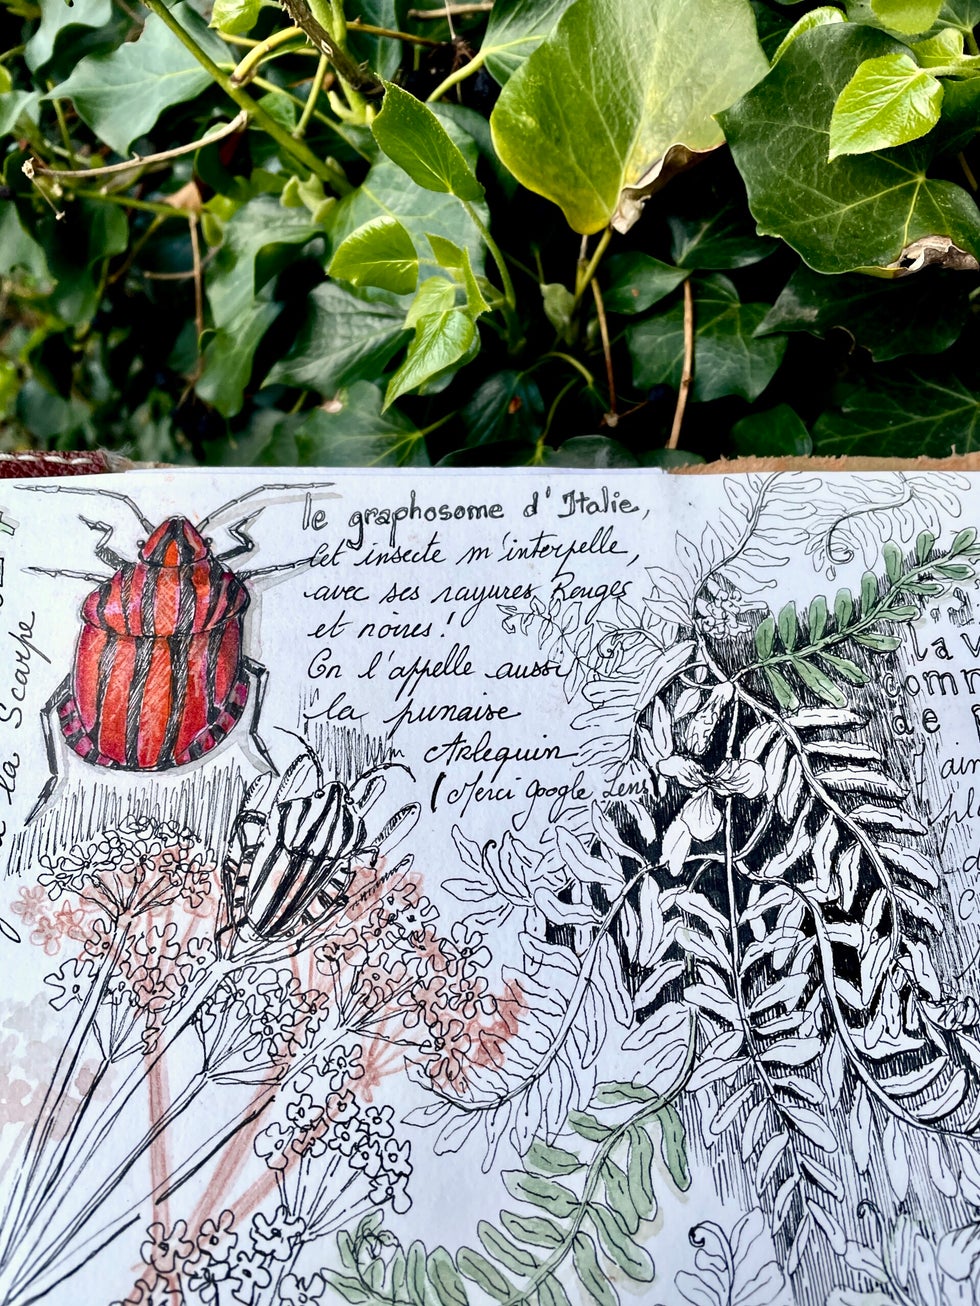 le graphosome d'Italie,
Cet insecte m'interpelle,
avec ses rayures Rouges
et noires!
On l'appelle aussi
la punaise
Arlequin
(Merci google Lens)
la Scarpe
la v
comm
de
ain